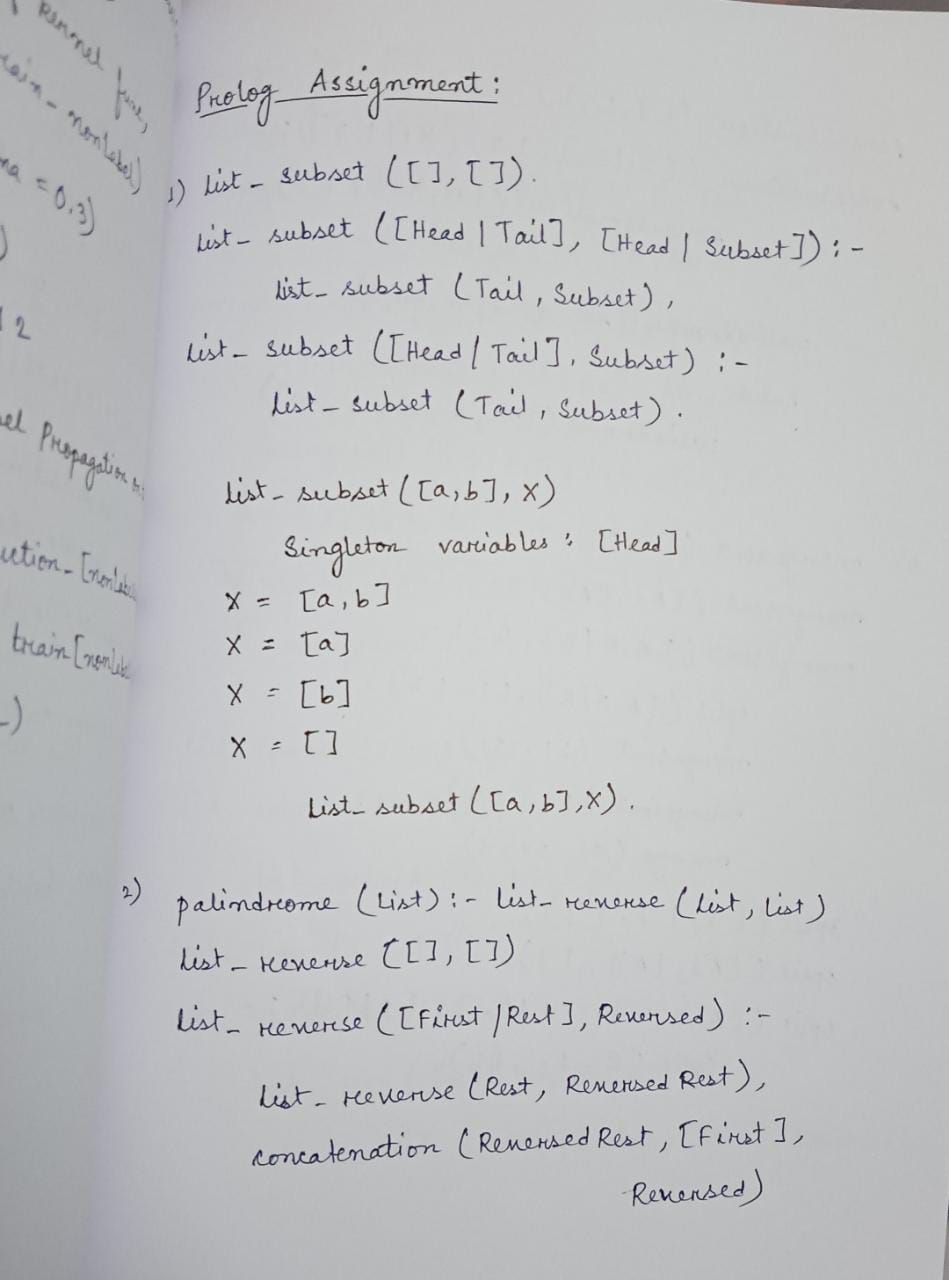 Kernel func,
train_nonlabel)
ma = 0.3)
)
12
el Propagation
uction_[nonlabe
train[nonlab
_)
Prolog Assignment:
1) List_subset ([], []).
List_subset ([Head | Tail], [Head | Subset]) :-
List_subset (Tail, Subset),
List_subset ([Head | Tail], Subset) :-
List_subset (Tail, Subset).
List_subset ([a,b], X)
Singleton variables: [Head]
X = [a,b]
X = [a]
X = [b]
X = []
List_subset ([a,b],X).
2) palindrome (List) :- List_reverse (List, List)
List_reverse ([], [])
List_reverse ([First | Rest], Reversed) :-
List_reverse (Rest, Reversed Rest),
concatenation (Reversed Rest, [First],
Reversed)